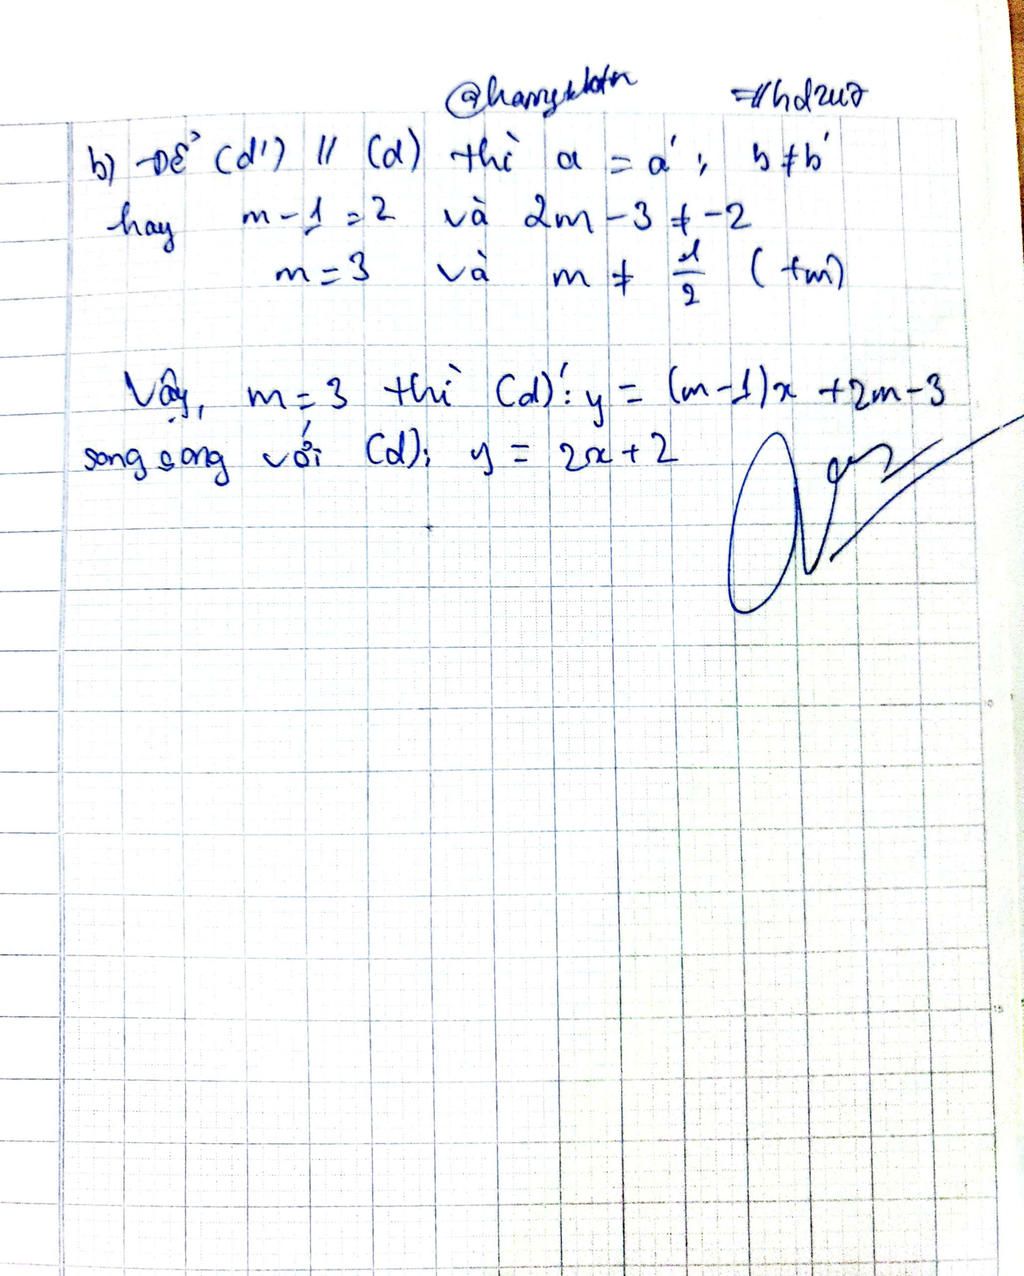 b) Để (d') // (d) thì a = a'; b ≠ b'
hay m - 1 = 2 và 2m - 3 ≠ -2
m = 3 và m ≠ 1/2 (tm)
Vậy, m = 3 thì (d)': y = (m-1)x + 2m - 3
song song với (d): y = 2x + 2